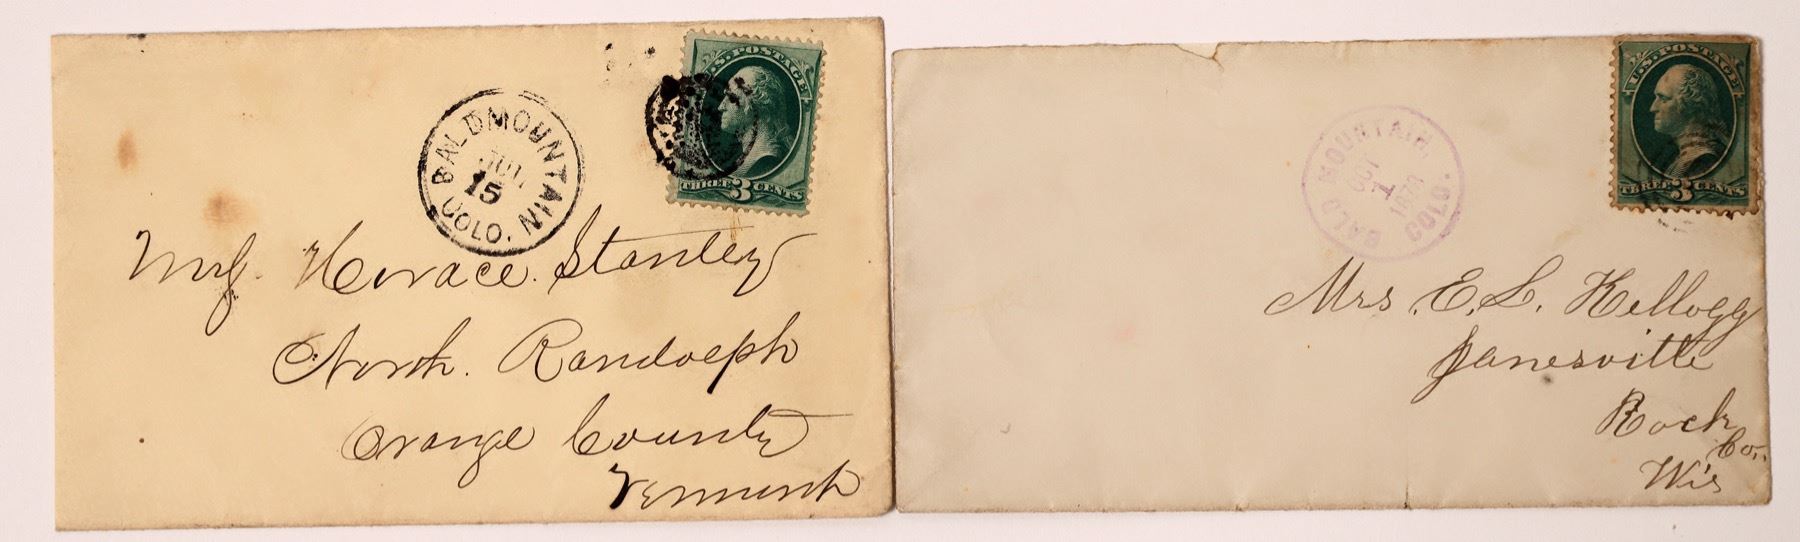 U.S. POSTAGE
THREE 3 CENTS
BALD MOUNTAIN
JUL
15
COLO.
Horace Stanley
North Randolph
Orange County
Vermont
U.S. POSTAGE
THREE 3 CENTS
BALD MOUNTAIN,
OCT
1
1878
COLO.
Mrs. E. L. Kellogg
Janesville
Rock
Co.
Wis